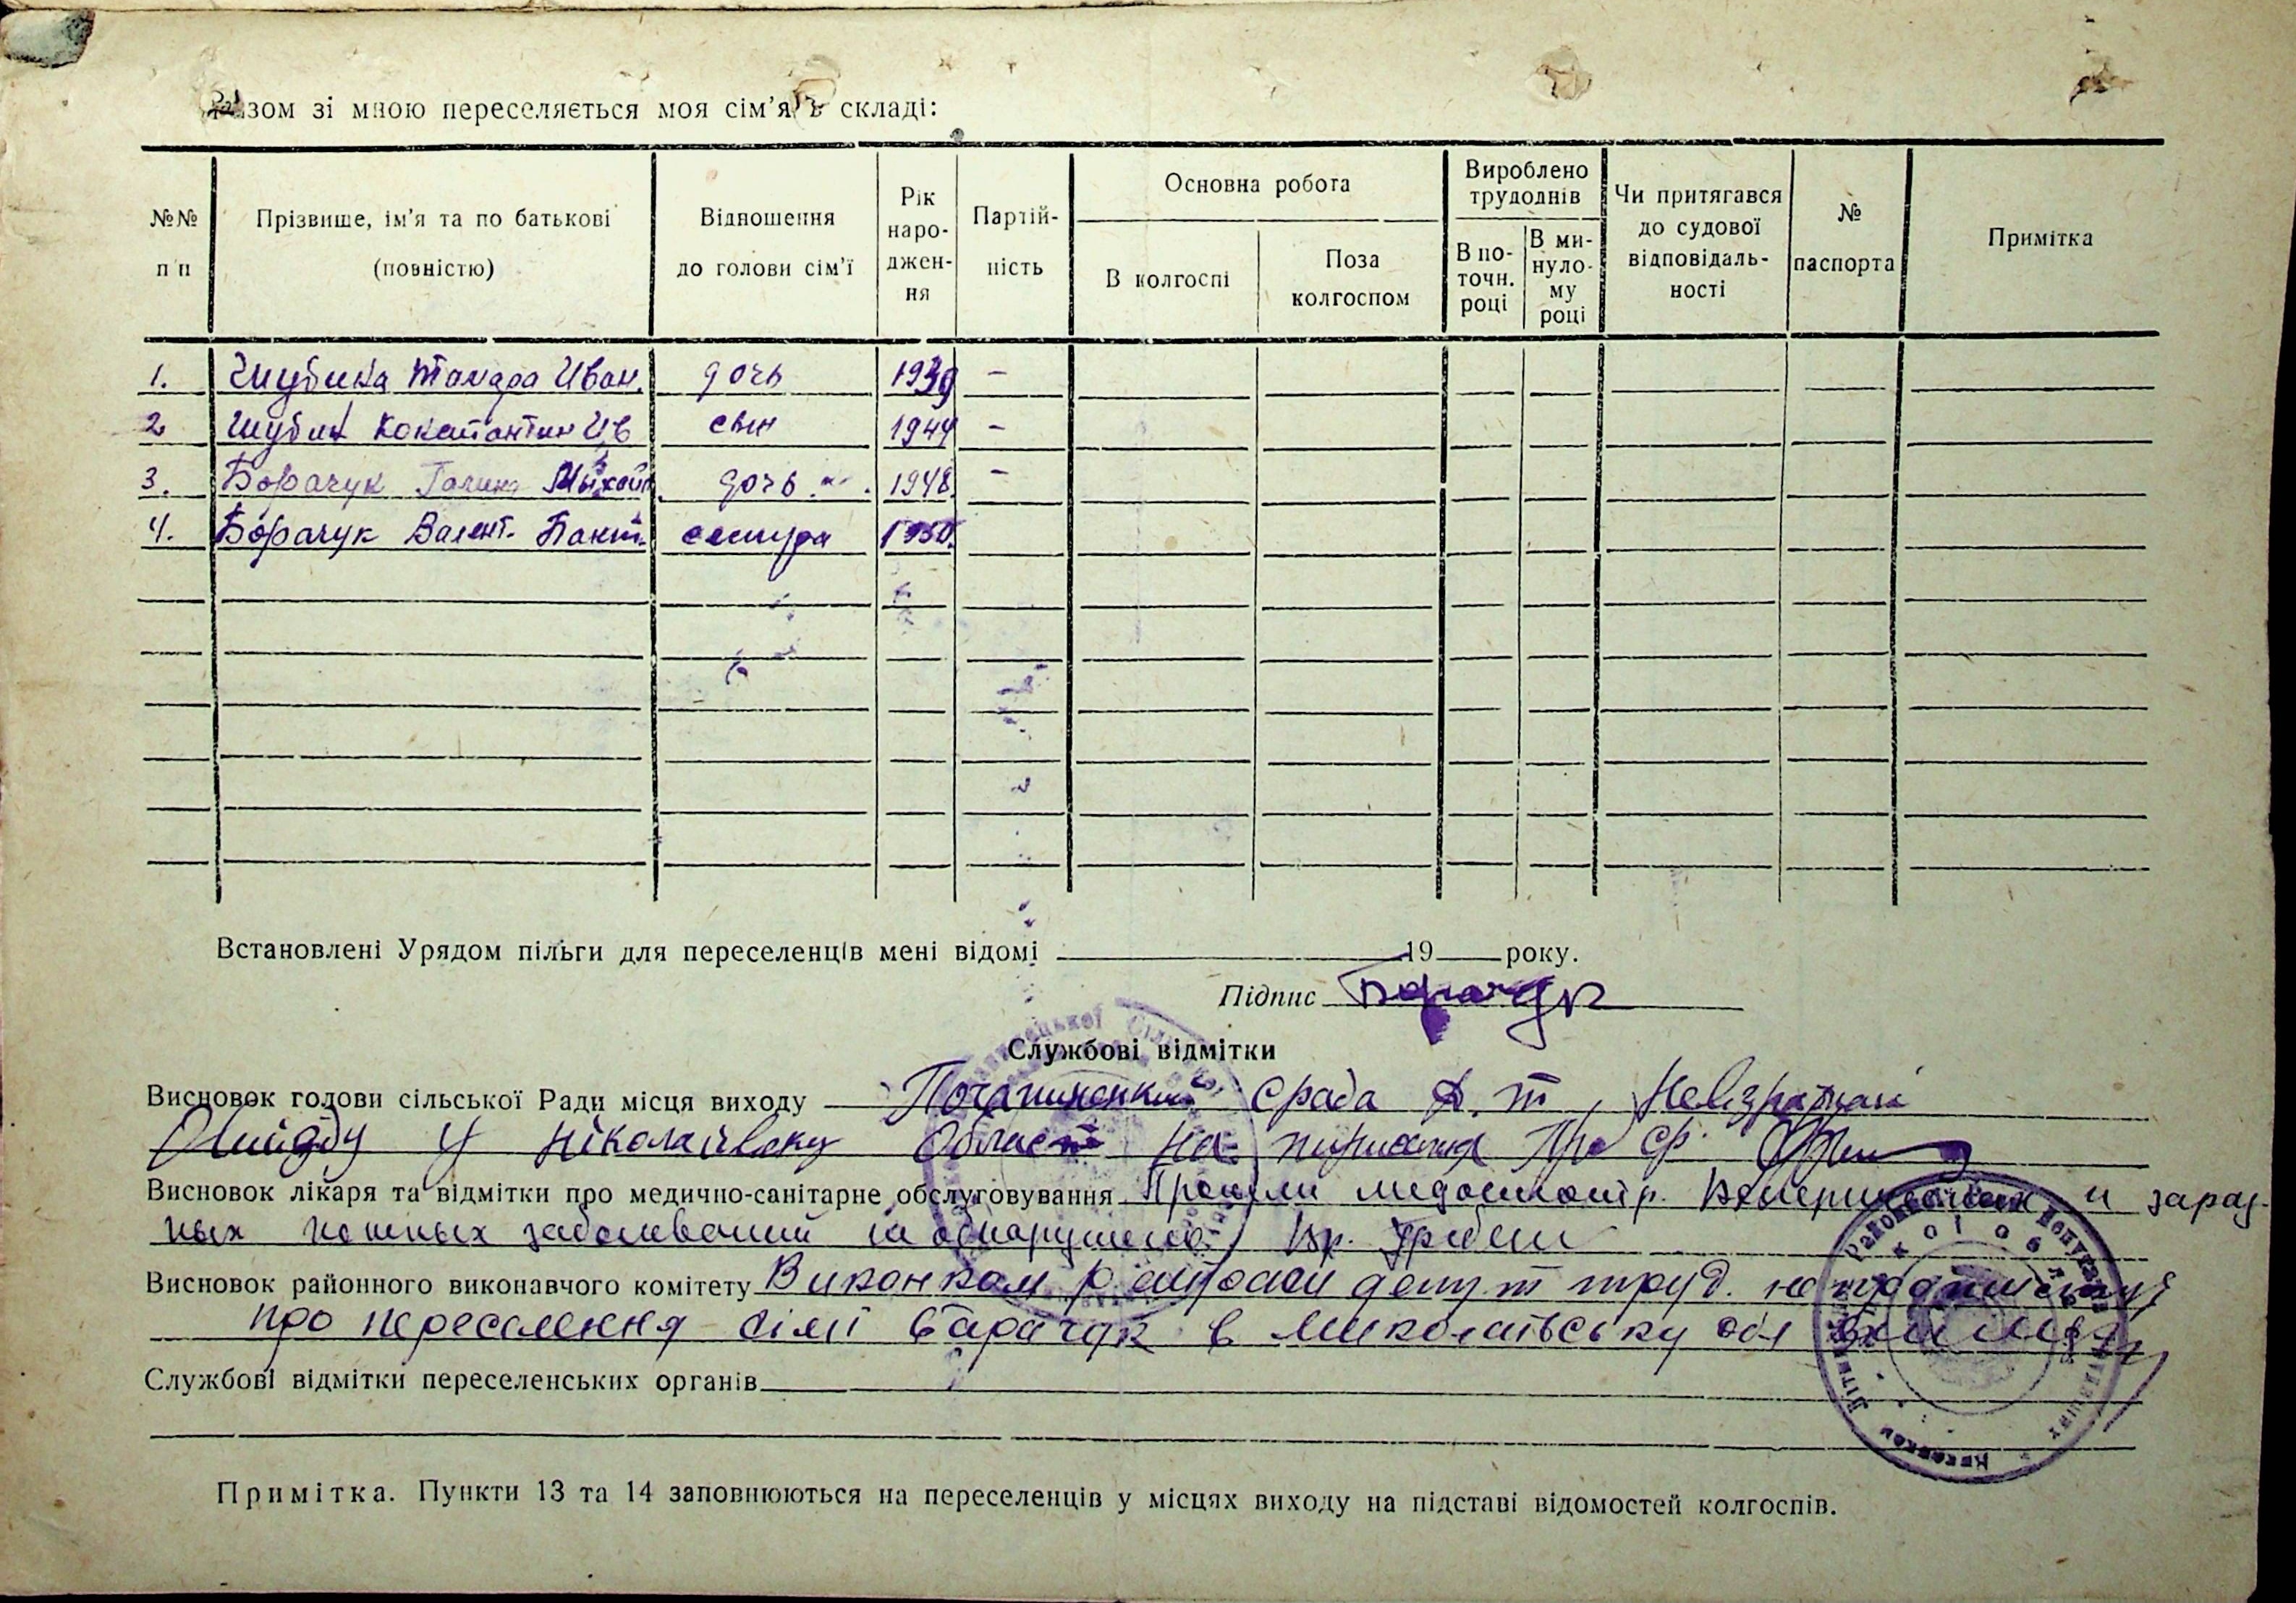 Разом зі мною переселяється моя сім’я в складі:
№№ п п
Прізвище, ім’я та по батькові (повністю)
Відношення до голови сім’ї
Рік народження
Партійність
Основна робота
В колгоспі
Поза колгоспом
Вироблено трудоднів
В поточн. році
В минулому році
Чи притягався до судової відповідальності
№ паспорта
Примітка
1. Шубина Тамара Иван. дочь 1939 –
2 Шубин Константин Ив сын 1944 –
3. Борачук Галина Михайл. дочь 1948. –
4. Борачук Валент. Пант. сестра 1950.
Встановлені Урядом пільги для переселенців мені відомі 19 року.
Підпис Борачук
Службові відмітки
Висновок голови сільської Ради місця виходу Почапинський срада д. т,
у Ніколаївську Област на
Висновок лікаря та відмітки про медично-санітарне обслуговування Прошли медосмотр. Венерических и зараз-
ных кожных заболеваний не обнаружено Вр.
Висновок районного виконавчого комітету Виконком райради депут труд.
про переселення сімї Барачук в Миколаївську обл
Службові відмітки переселенських органів
Примітка. Пункти 13 та 14 заповнюються на переселенців у місцях виходу на підставі відомостей колгоспів.